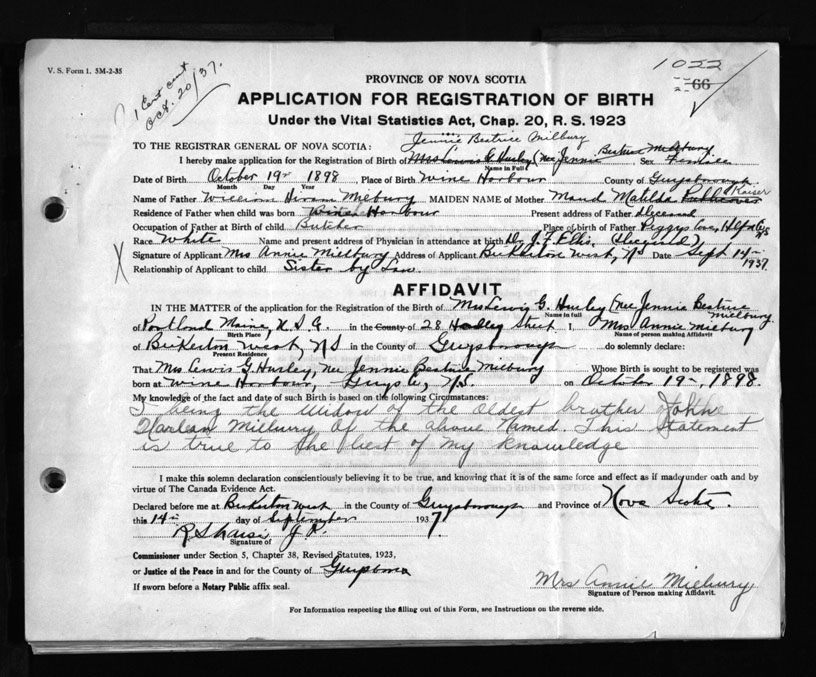 V. S. Form 1. 5M-2-35
1 Cert sent
Oct. 20/37.
1022
66
PROVINCE OF NOVA SCOTIA
APPLICATION FOR REGISTRATION OF BIRTH
Under the Vital Statistics Act, Chap. 20, R. S. 1923
Jennie Beatrice Milbury
TO THE REGISTRAR GENERAL OF NOVA SCOTIA:
I hereby make application for the Registration of Birth of Mrs Lewis G Hurley (nee Jennie Beatrice Milbury Sex Female
Name in Full
Date of Birth October 19th 1898, Place of Birth Wine Harbour County of Guysborough
Month Day Year
Name of Father William Hiram Milbury MAIDEN NAME of Mother Maud Matilda Kaiser
Residence of Father when child was born Wine Harbour Present address of Father Deceased
Occupation of Father at Birth of child Butcher Place of birth of Father Peggys Cove, Hfx Co NS
Race White Name and present address of Physician in attendance at birth Dr. J. F. Ellis. (Deceased)
Signature of Applicant Mrs Annie Milbury Address of Applicant Bickerton West, NS Date Sept 14th 1937.
Relationship of Applicant to child Sister by Law.
X
AFFIDAVIT
IN THE MATTER of the application for the Registration of the Birth of Mrs Lewis G. Hurley (nee Jennie Beatrice Milbury
Name in full
of Portland Maine, U.S.A. in the County of 28 Hadley Street I, Mrs Annie Milbury
Birth Place Name of person making Affidavit
of Bickerton West, NS in the County of Guysborough do solemnly declare:
Present Residence
That Mrs Lewis G. Hurley, nee Jennie Beatrice Milbury Whose Birth is sought to be registered was
born at Wine Harbour, Guys Co, N.S. on October 19th, 1898.
My knowledge of the fact and date of such Birth is based on the following Circumstances:
I being the widow of the oldest brother John
Harlean Milbury of the above Named. This Statement
is true to the best of my knowledge
I make this solemn declaration conscientiously believing it to be true, and knowing that it is of the same force and effect as if made under oath and by
virtue of The Canada Evidence Act.
Declared before me at Bickerton West in the County of Guysborough and Province of Nova Scotia.
this 14th day of September 1937.
R S Kaiser J.P.
Signature of
Commissioner under Section 5, Chapter 38, Revised Statutes, 1923,
or Justice of the Peace in and for the County of Guysboro
If sworn before a Notary Public affix seal.
Mrs Annie Milbury
Signature of Person making Affidavit.
For Information respecting the filling out of this Form, see Instructions on the reverse side.